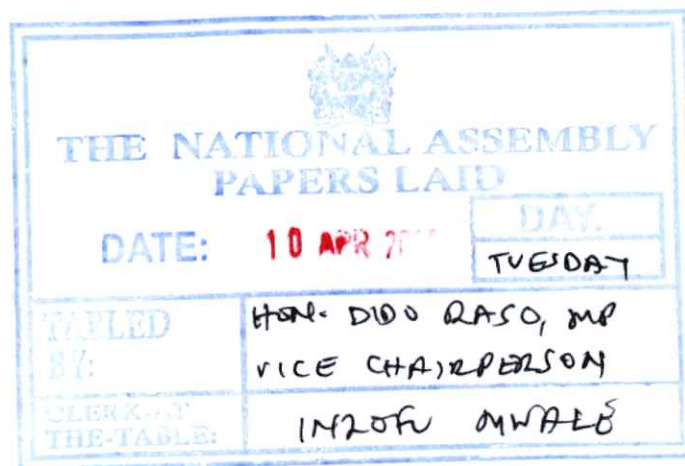 THE NATIONAL ASSEMBLY
PAPERS LAID
DATE: 10 APR
DAY.
TUESDAY
TABLED BY:
HON. DIDO RASO, MP
VICE CHAIRPERSON
CLERK-AT THE-TABLE:
MWALE